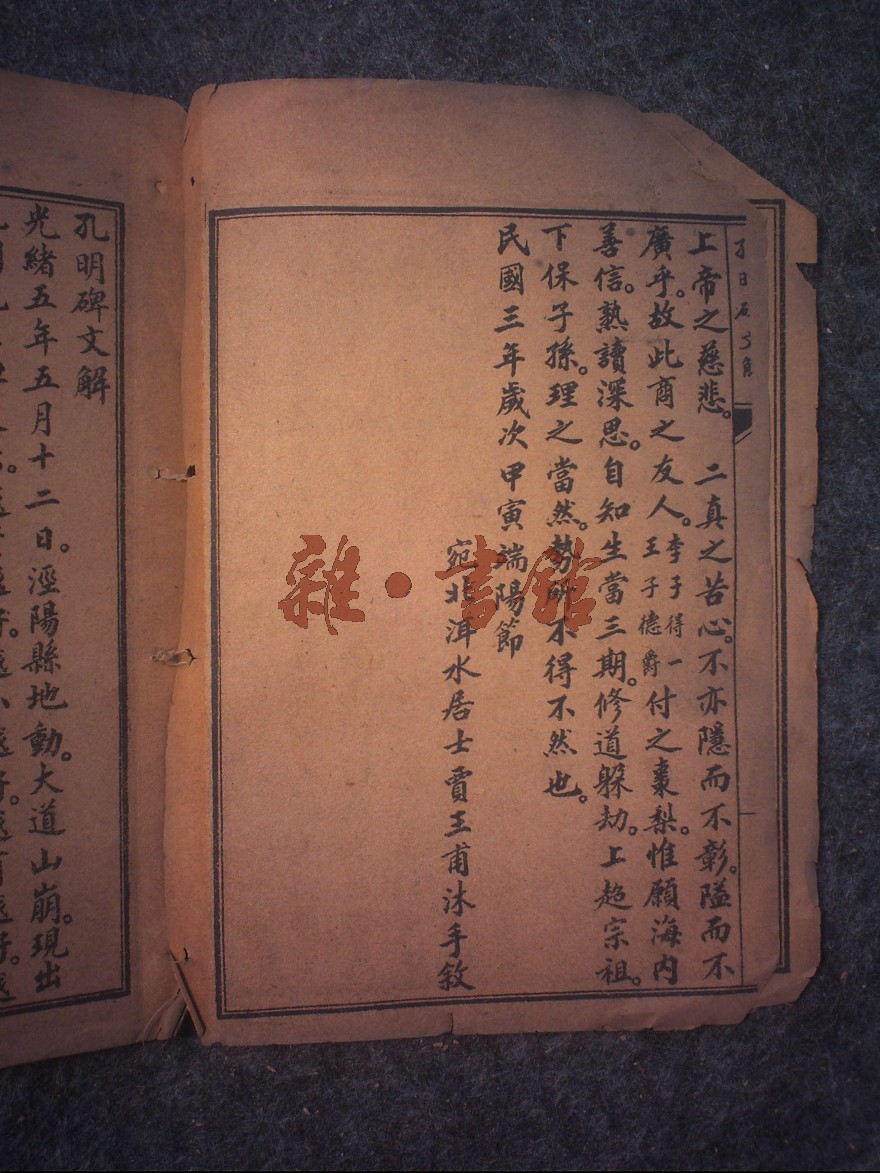 上帝之慈悲。二真之苦心。不亦隱而不彰。隘而不
廣乎。故此商之友人。李子得一王子德爵付之棗梨。惟願海內
善信。熟讀深思。自知生當三期。修道躲劫。上超宗祖。
下保子孫。理之當然。勢所不得不然也。
民國三年歲次甲寅端陽節
宛北洱水居士賈王甫沐手敘
孔明碑文解
光緒五年五月十二日。涇陽縣地動。大道山崩。現出
雜·書館